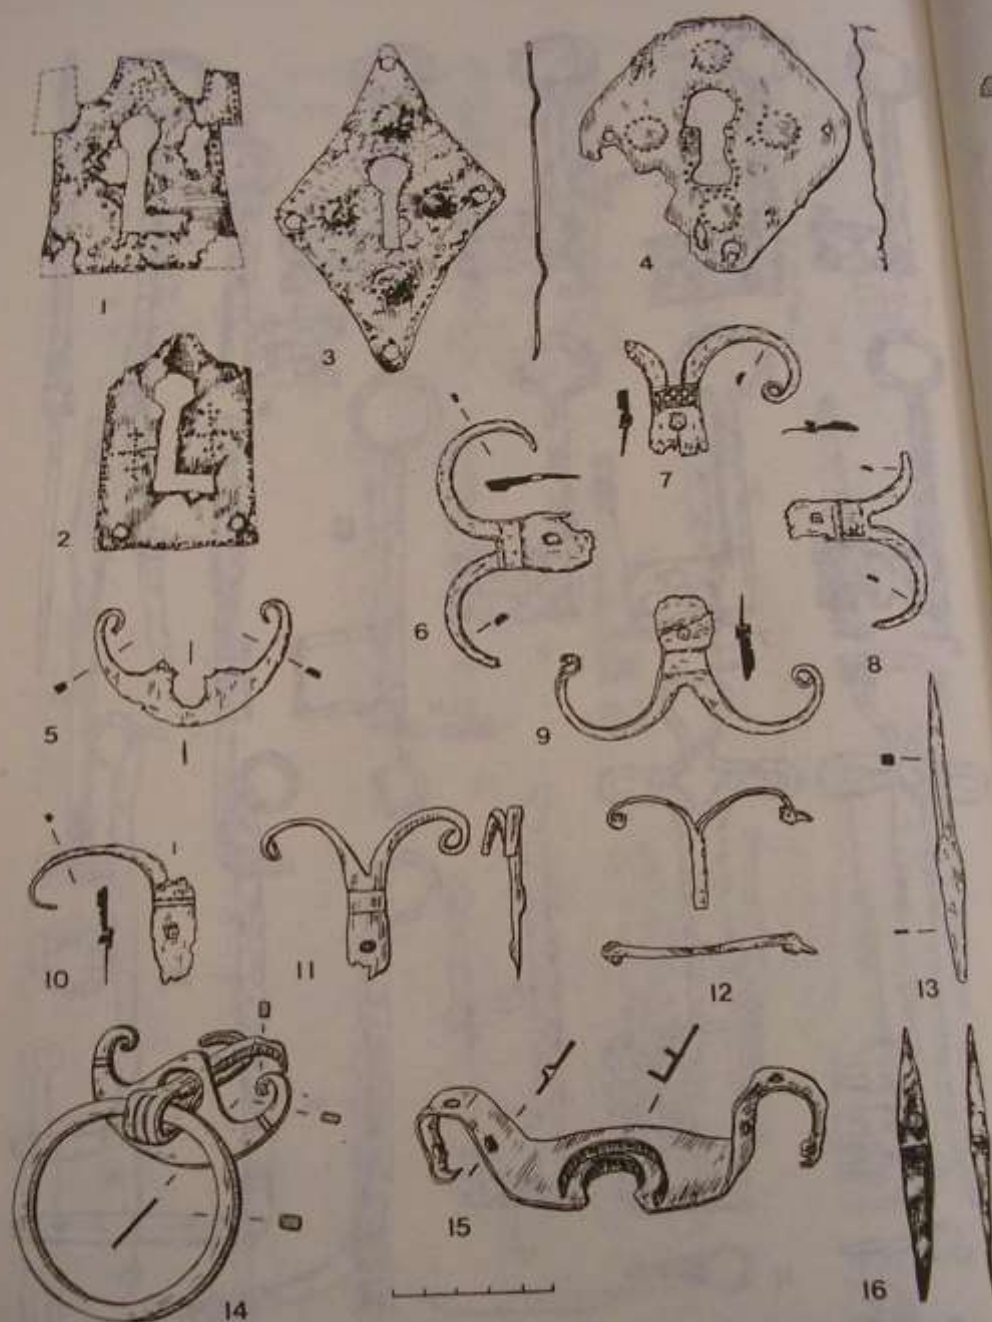 1
3
4
2
7
6
8
5
9
10
11
12
13
14
15
16